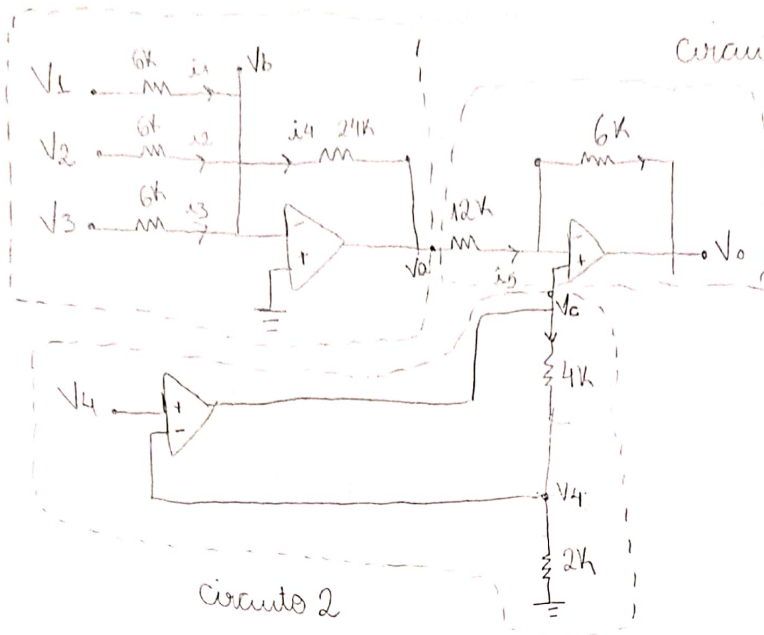 circui
V1 6K i1 Vb
V2 6K i2 i4 24K
V3 6K i3
- +
Va 12K i5
6K
- +
Vo
Vc
4K
V4 + -
V4
2K
circuito 2